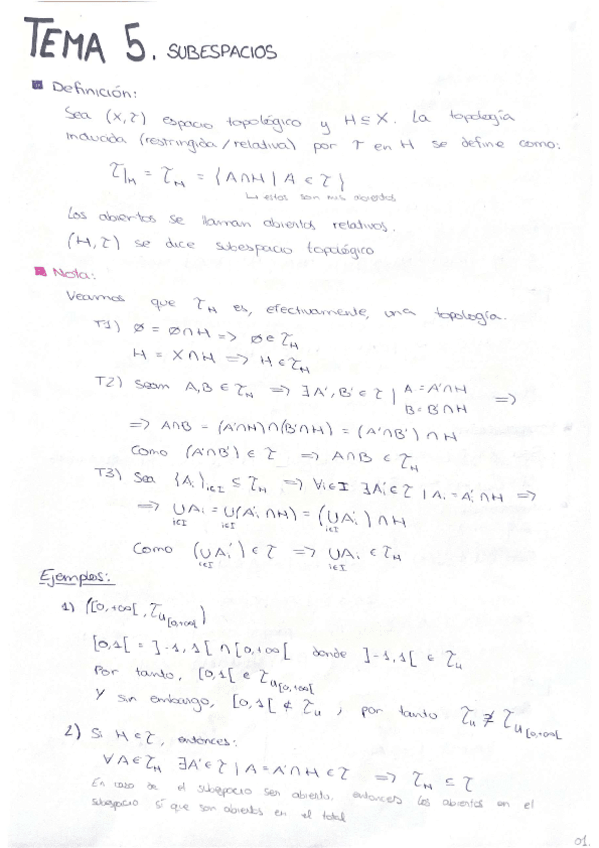 TEMA 5. SUBESPACIOS
Definición:
Sea (X,τ) espacio topológico y H⊆X. La topología
inducida (restringida/relativa) por τ en H se define como:
τ|_H = τ_H = {A∩H | A ∈ τ}
↳ estos son mis abiertos
Los abiertos se llaman abiertos relativos.
(H,τ) se dice subespacio topológico
Nota:
Veamos que τ_H es, efectivamente, una topología.
T1) ∅ = ∅∩H => ∅∈τ_H
H = X∩H => H∈τ_H
T2) Sean A,B ∈ τ_H => ∃A',B' ∈ τ | A = A'∩H =>
B = B'∩H
=> A∩B = (A'∩H)∩(B'∩H) = (A'∩B')∩H
Como (A'∩B') ∈ τ => A∩B ∈ τ_H
T3) Sea {A_i}_{i∈I} ⊆ τ_H => ∀i∈I ∃A_i'∈τ | A_i = A_i'∩H =>
=> ∪_{i∈I} A_i = ∪_{i∈I} (A_i'∩H) = (∪_{i∈I} A_i')∩H
Como (∪_{i∈I} A_i') ∈ τ => ∪_{i∈I} A_i ∈ τ_H
Ejemplos:
1) ([0,+∞[, τ_{u[0,+∞[})
[0,1[ = ]-1,1[ ∩ [0,+∞[ donde ]-1,1[ ∈ τ_u
Por tanto, [0,1[ ∈ τ_{u[0,+∞[}
Y sin embargo, [0,1[ ∉ τ_u, por tanto τ_u ≠ τ_{u[0,+∞[}
2) Si H∈τ, entonces:
∀A∈τ_H ∃A'∈τ | A = A'∩H ∈ τ => τ_H ⊆ τ
En caso de el subespacio ser abierto, entonces los abiertos en el
subespacio sí que son abiertos en el total
01.